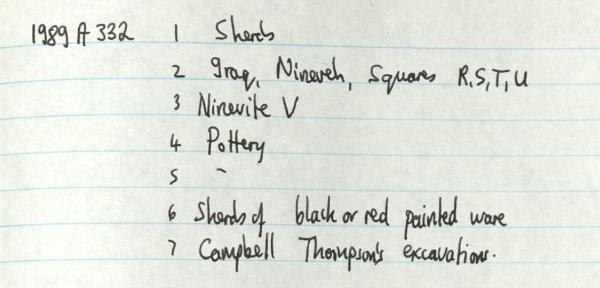 1989 A 332 1 Sherds
2 Iraq, Nineveh, Squares R,S,T,U
3 Ninevite V
4 Pottery
5 -
6 Sherds of black or red painted ware
7 Campbell Thompson's excavations.